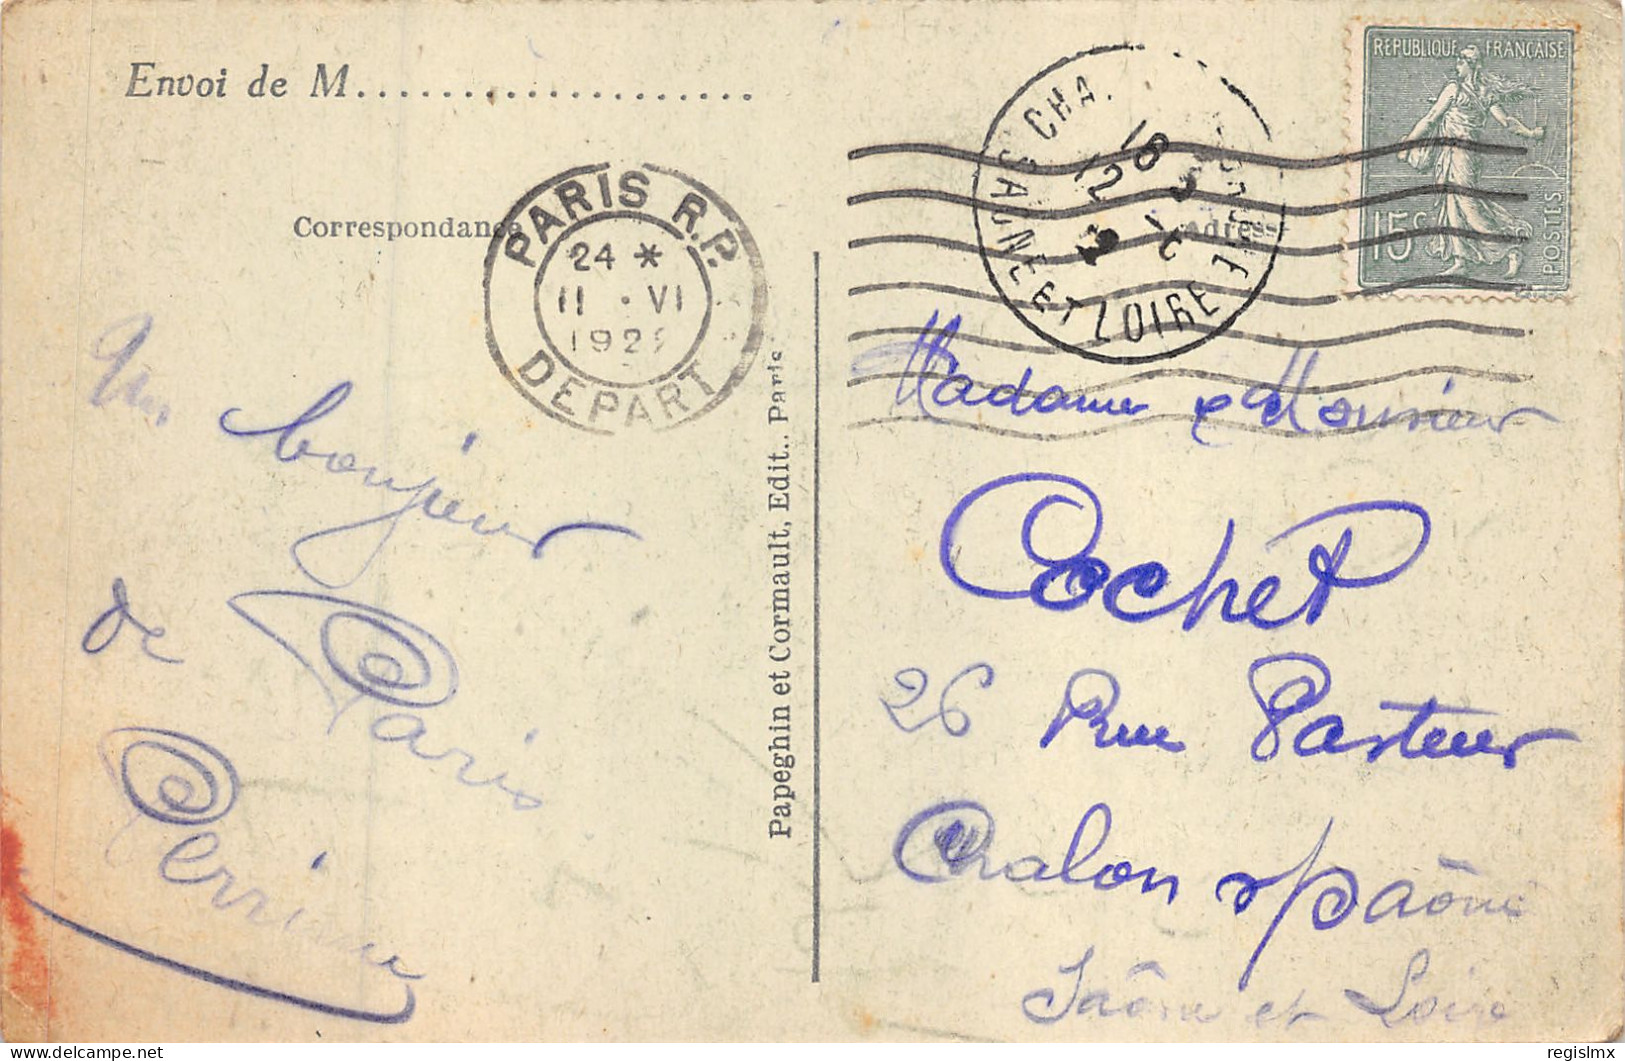 Envoi de M.....................
Correspondance
PARIS R.P.
24 *
11 · VI
DEPART
Un
bonjour
de Paris
Perrine
Papeghin et Cormault, Edit., Paris
CHA
18
12
SAONE ET LOIRE
REPUBLIQUE FRANÇAISE
15c
POSTES
Adresse
Madame & Monsieur
Cochet
26 Rue Pasteur
Chalon s/ Saône
Saône et Loire
delcampe.net
regislmx